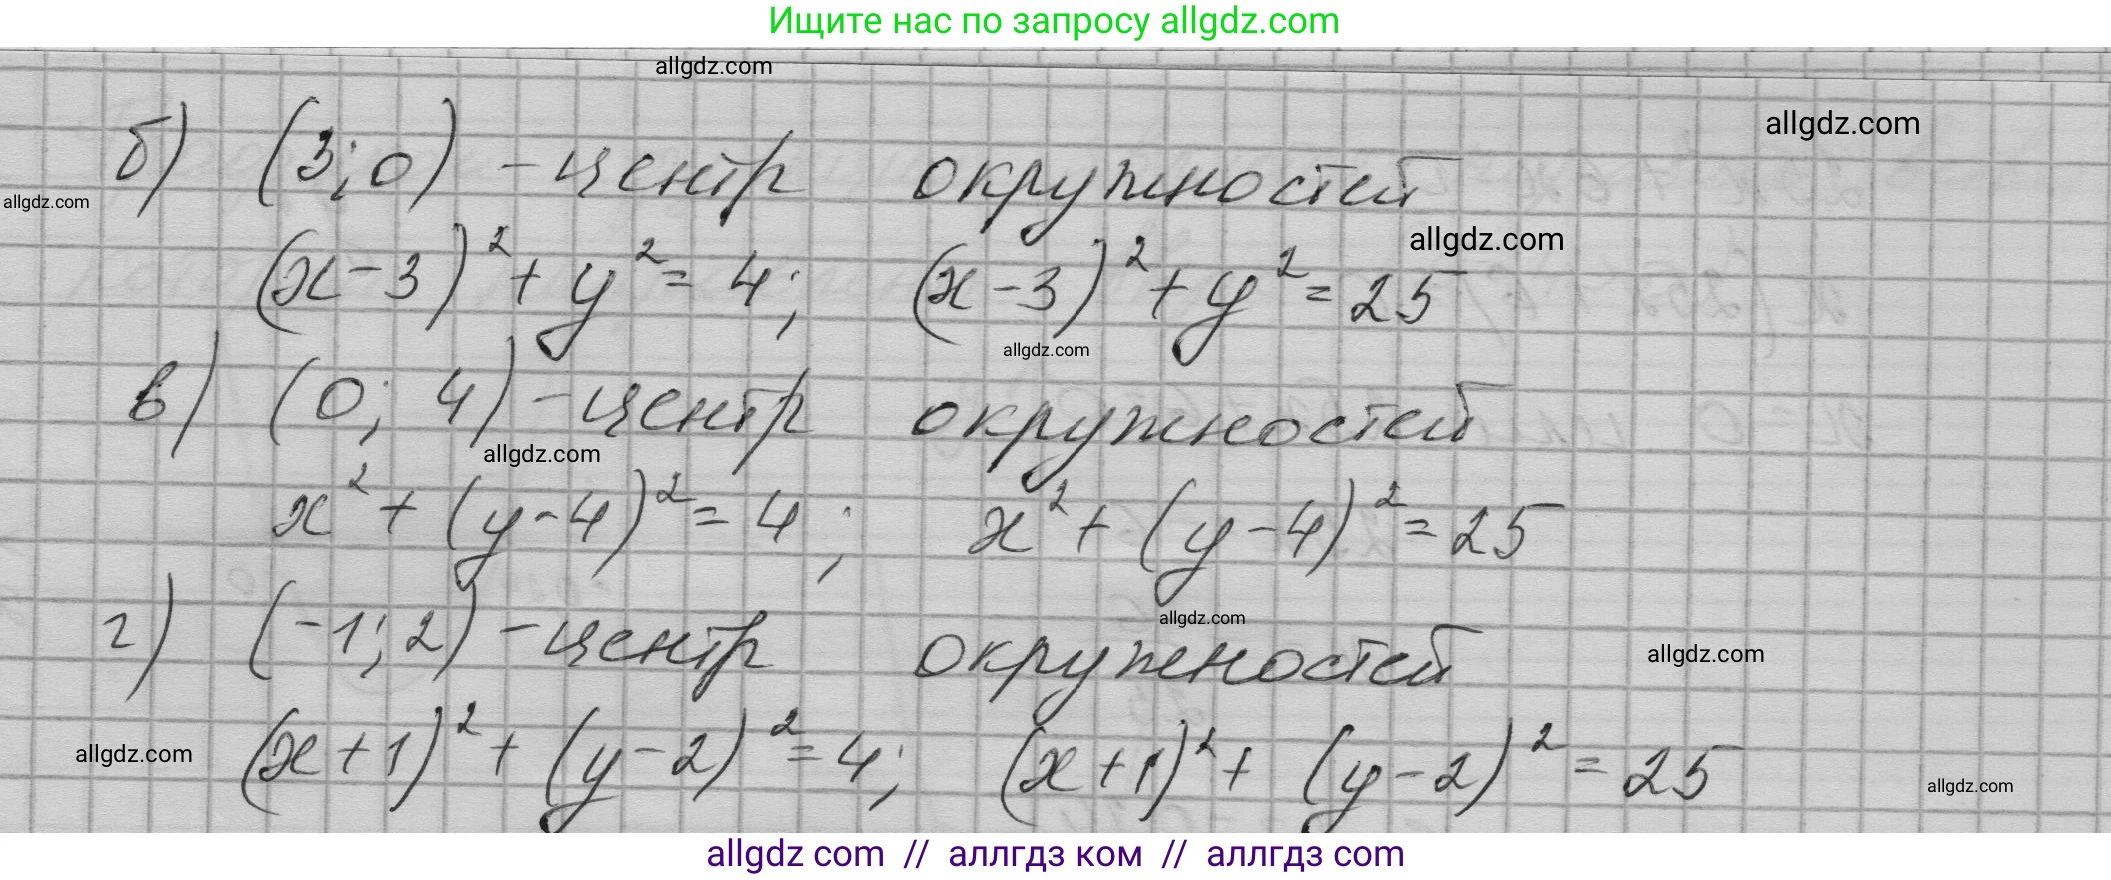 Ищите нас по запросу allgdz.com
allgdz.com
allgdz.com
б) (3; 0) - центр окружностей
allgdz.com
allgdz.com
(x-3)² + y² = 4; (x-3)² + y² = 25
allgdz.com
в) (0; 4) - центр окружностей
allgdz.com
x² + (y-4)² = 4; x² + (y-4)² = 25
allgdz.com
г) (-1; 2) - центр окружностей
allgdz.com
(x+1)² + (y-2)² = 4; (x+1)² + (y-2)² = 25
allgdz.com
allgdz.com
allgdz com // аллгдз ком // аллгдз com